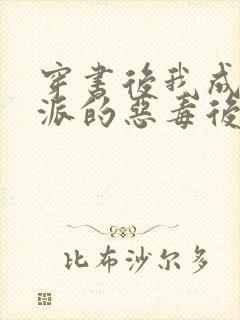 穿書後我成
派的惡毒後
比布沙尔多